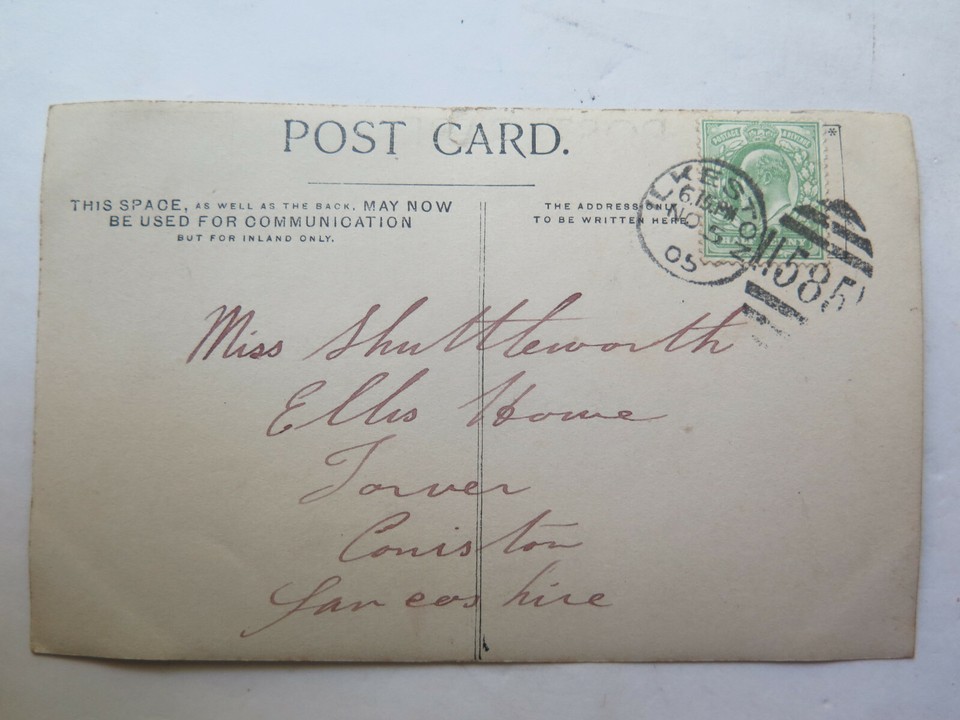 POST CARD.
THIS SPACE, AS WELL AS THE BACK, MAY NOW
BE USED FOR COMMUNICATION
BUT FOR INLAND ONLY.
THE ADDRESS ONLY
TO BE WRITTEN HERE
*
POSTAGE & REVENUE
LKESTON
6.15 PM
NO 5
05
585
Miss Shuttleworth
Ellis Howe
Torver
Coniston
Lancashire